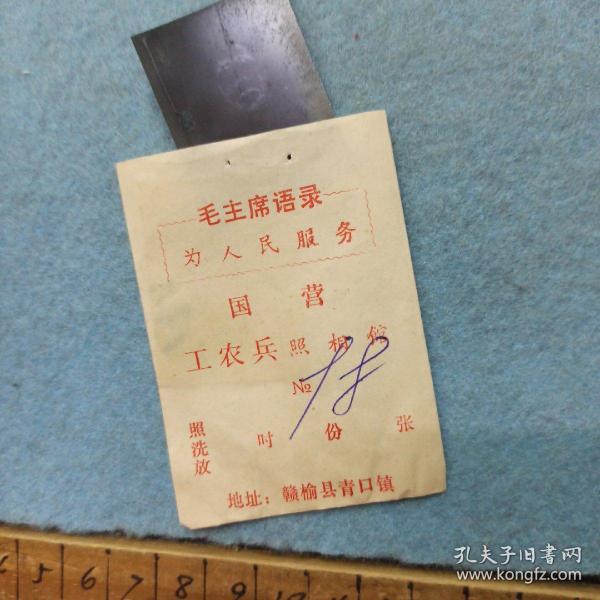 毛主席语录
为人民服务
国营
工农兵照相馆
№ 18
照洗放 时 份 张
地址：赣榆县青口镇
4 5 6 7 8 9 10 11 12 13
孔夫子旧书网
www.kongfz.com